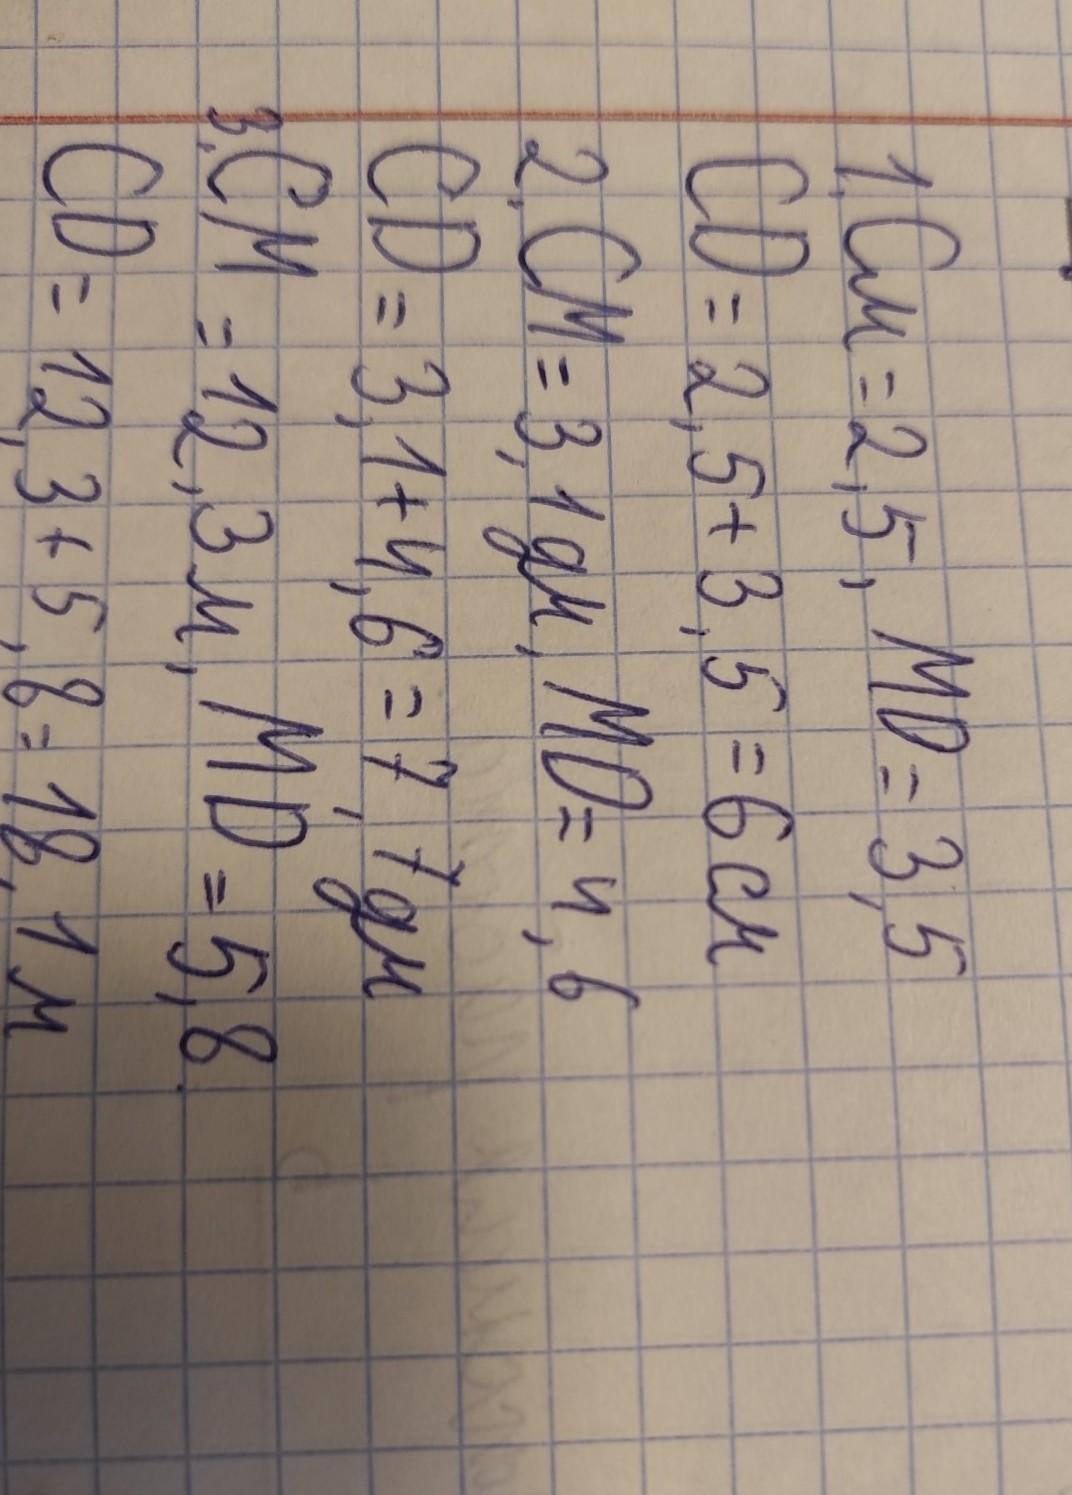 1, См = 2,5, MD = 3,5
CD = 2,5 + 3,5 = 6 см
2, CM = 3,1 дм, MD = 4,6
CD = 3,1 + 4,6 = 7,7 дм
3, CM = 12,3 м, MD = 5,8
CD = 12,3 + 5,8 = 18,1 м